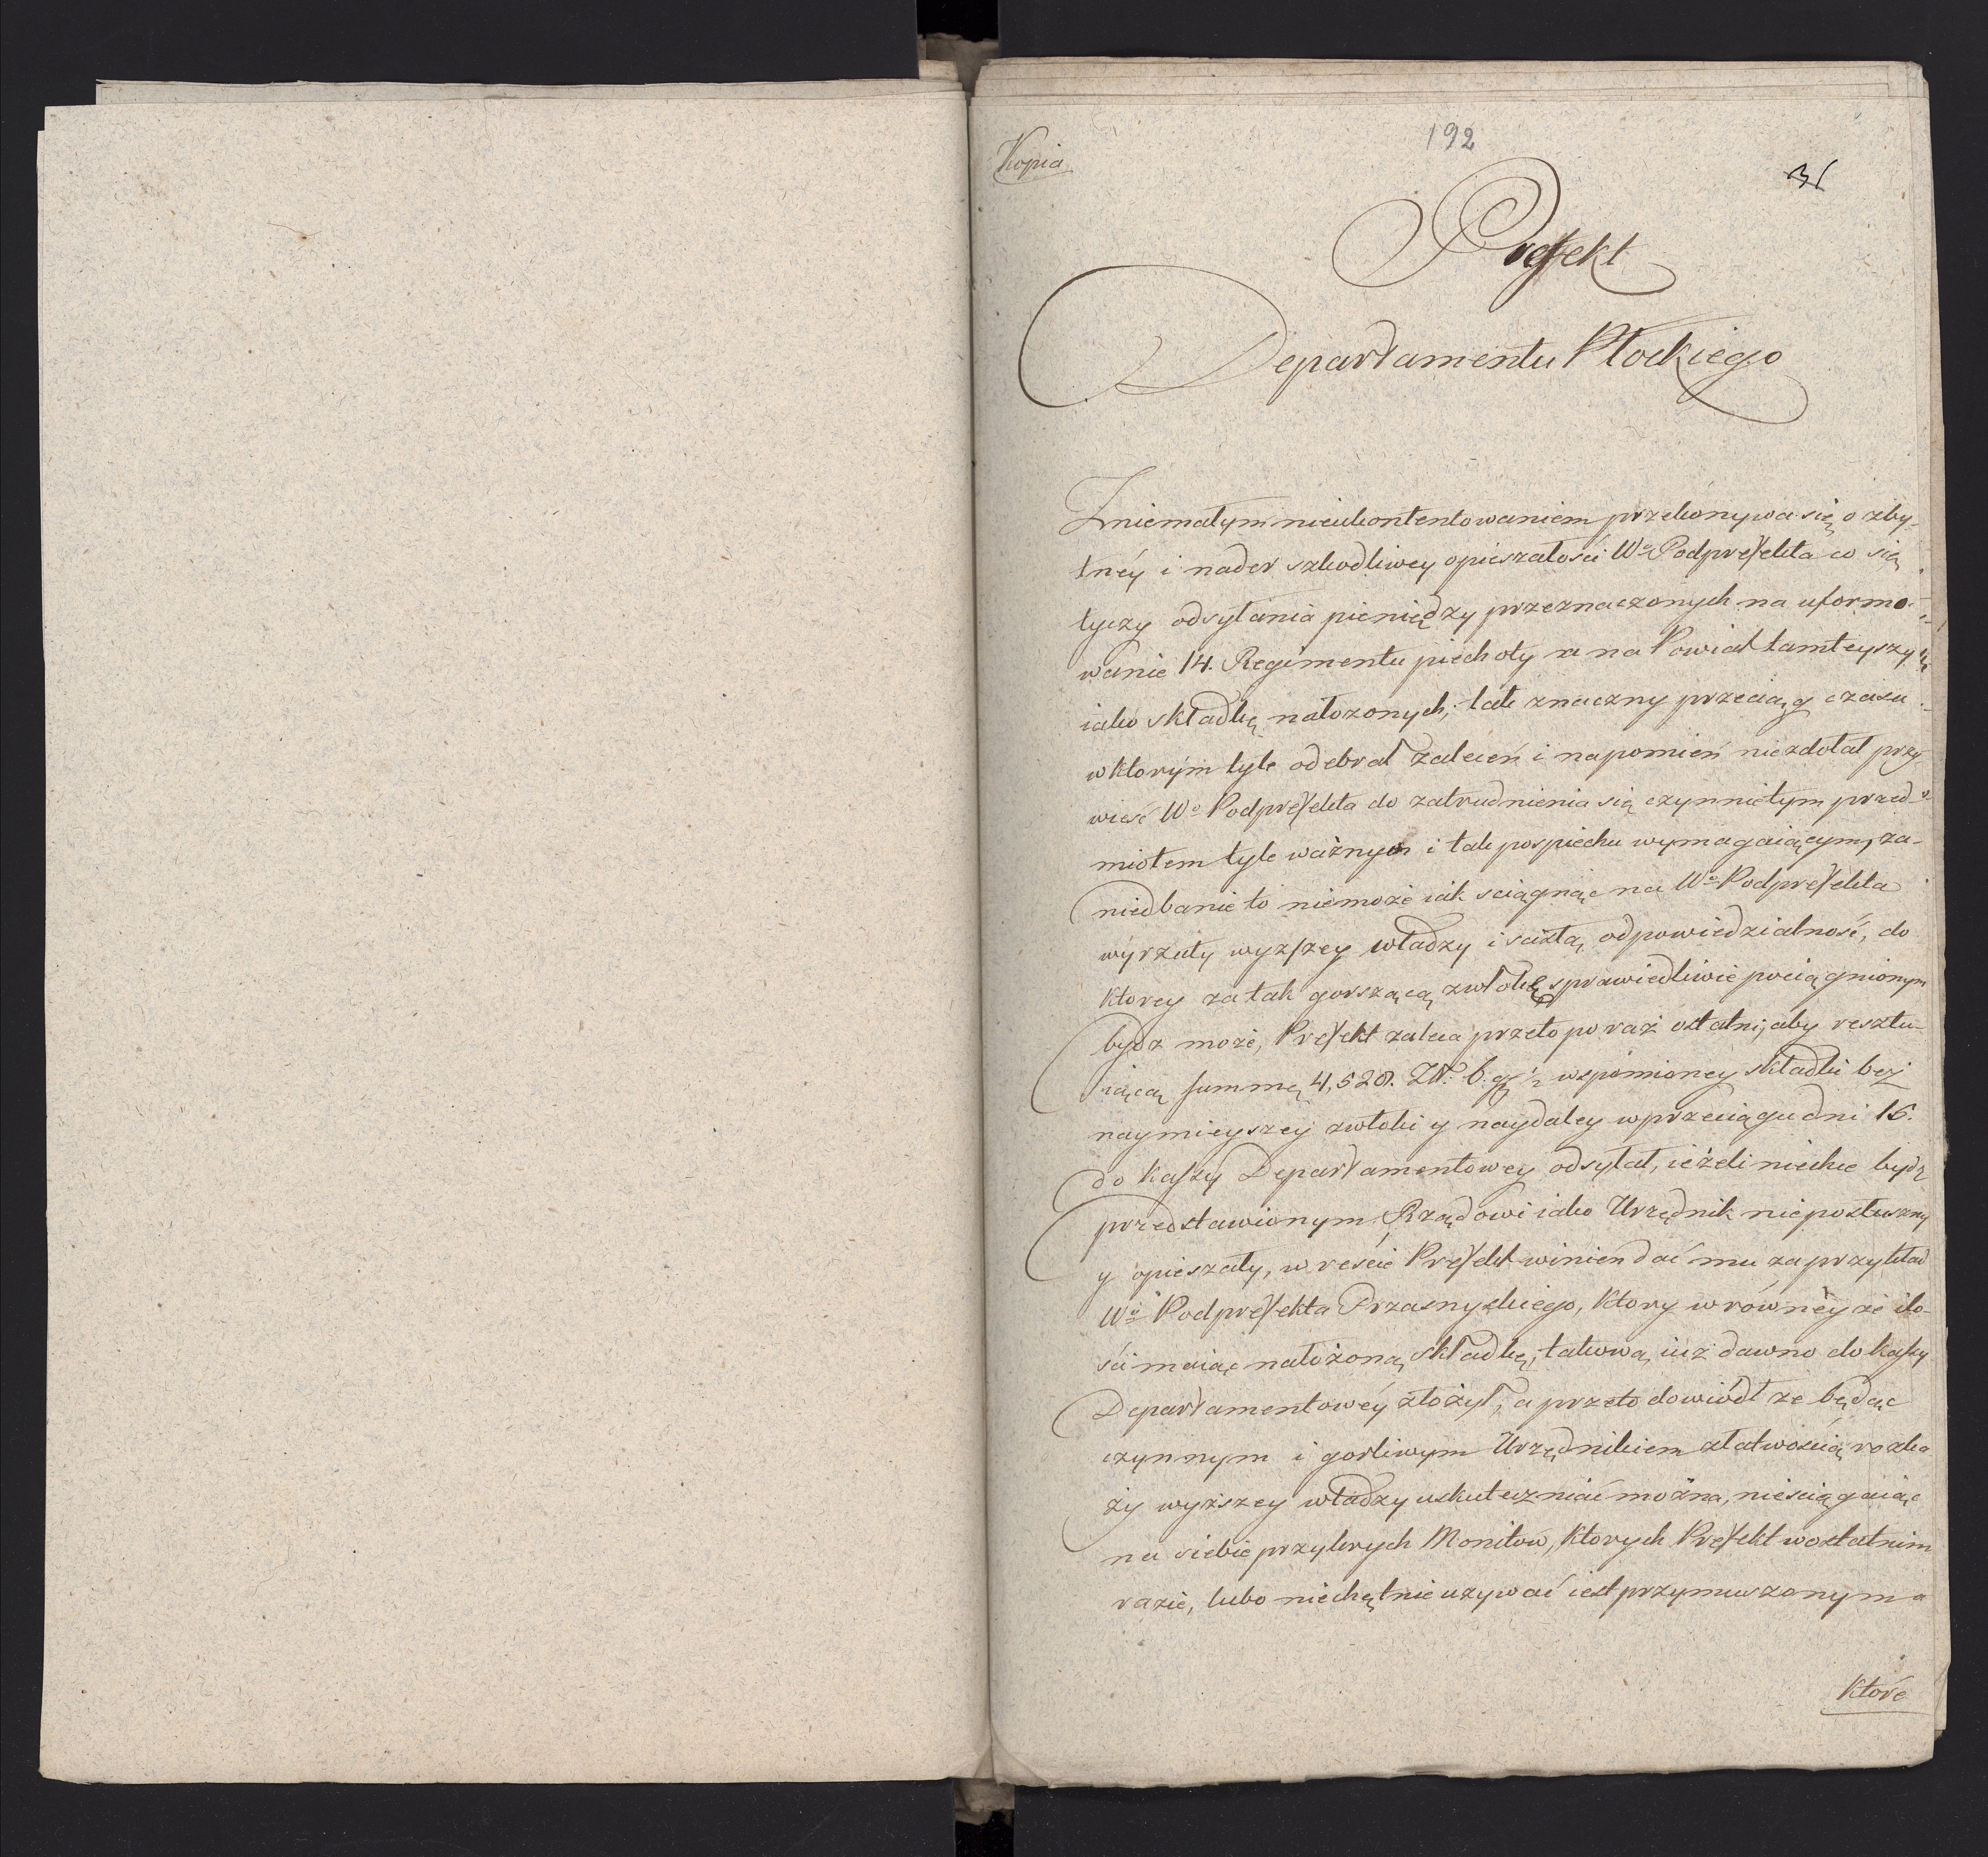 192
Kopia
31
Prefekt
Departamentu Płockiego
Zniemałym nieukontentowaniem przekonywa się o zby-
tnéy i nader szkodliwey opieszałości Wo Podprefekta co się
tyczy odsyłania pieniędzy przeznaczonych na uformo-
wanie 14. Regimentu piechoty a na Powiat tamteyszy
iako składkę nałożonych; tak znaczny przeciąg czasu
w ktorym tyle odebrał zaleceń i napomień niezdołał przy-
wieść Wo Podprefekta do zatrudnienia się czynnie tym przed-
miotem tyle ważnym i tak pospiechu wymagaiącym, za-
niedbanie to niemoże iak sciągnąc na Wo Podprefekta
wyrzuty wyzszey władzy i scisłą odpowiedzialność, do
ktorey za tak gorszącą zwłokę sprawiedliwie pociągnionym
bydz może, Prefekt zaleca przeto po raz ostatni, aby resztu-
iącą summę 4,528. Zł: 6. gr ½ wspomioney składki bez
naymieyszey zwłoki y naydaley w przeciągu dni 16.
do kassy Departamentowey odsyłał, ieżeli niechce bydz
przedstawionym Rządowi iako Urzędnik nieposłuszny
y opieszały, w reście Prefekt winien dać mu za przykład
Wo Podprefekta Przasnyskiego, ktory w równéy że ilo-
ści maiąc nałożoną składkę, takową iuż dawno do kassy
Departamentowéy złożył, a przeto dowiódł ze będąc
czynnym i gorliwym Urzędnikiem złatwością rozka
zy wyższey władzy uskuteczniać można, niesciągaiąc
na siebie przykrych Monitow, ktorych Prefekt w ostatnim
razie, lubo niechętnie uzywać iest przymuszonym a
które